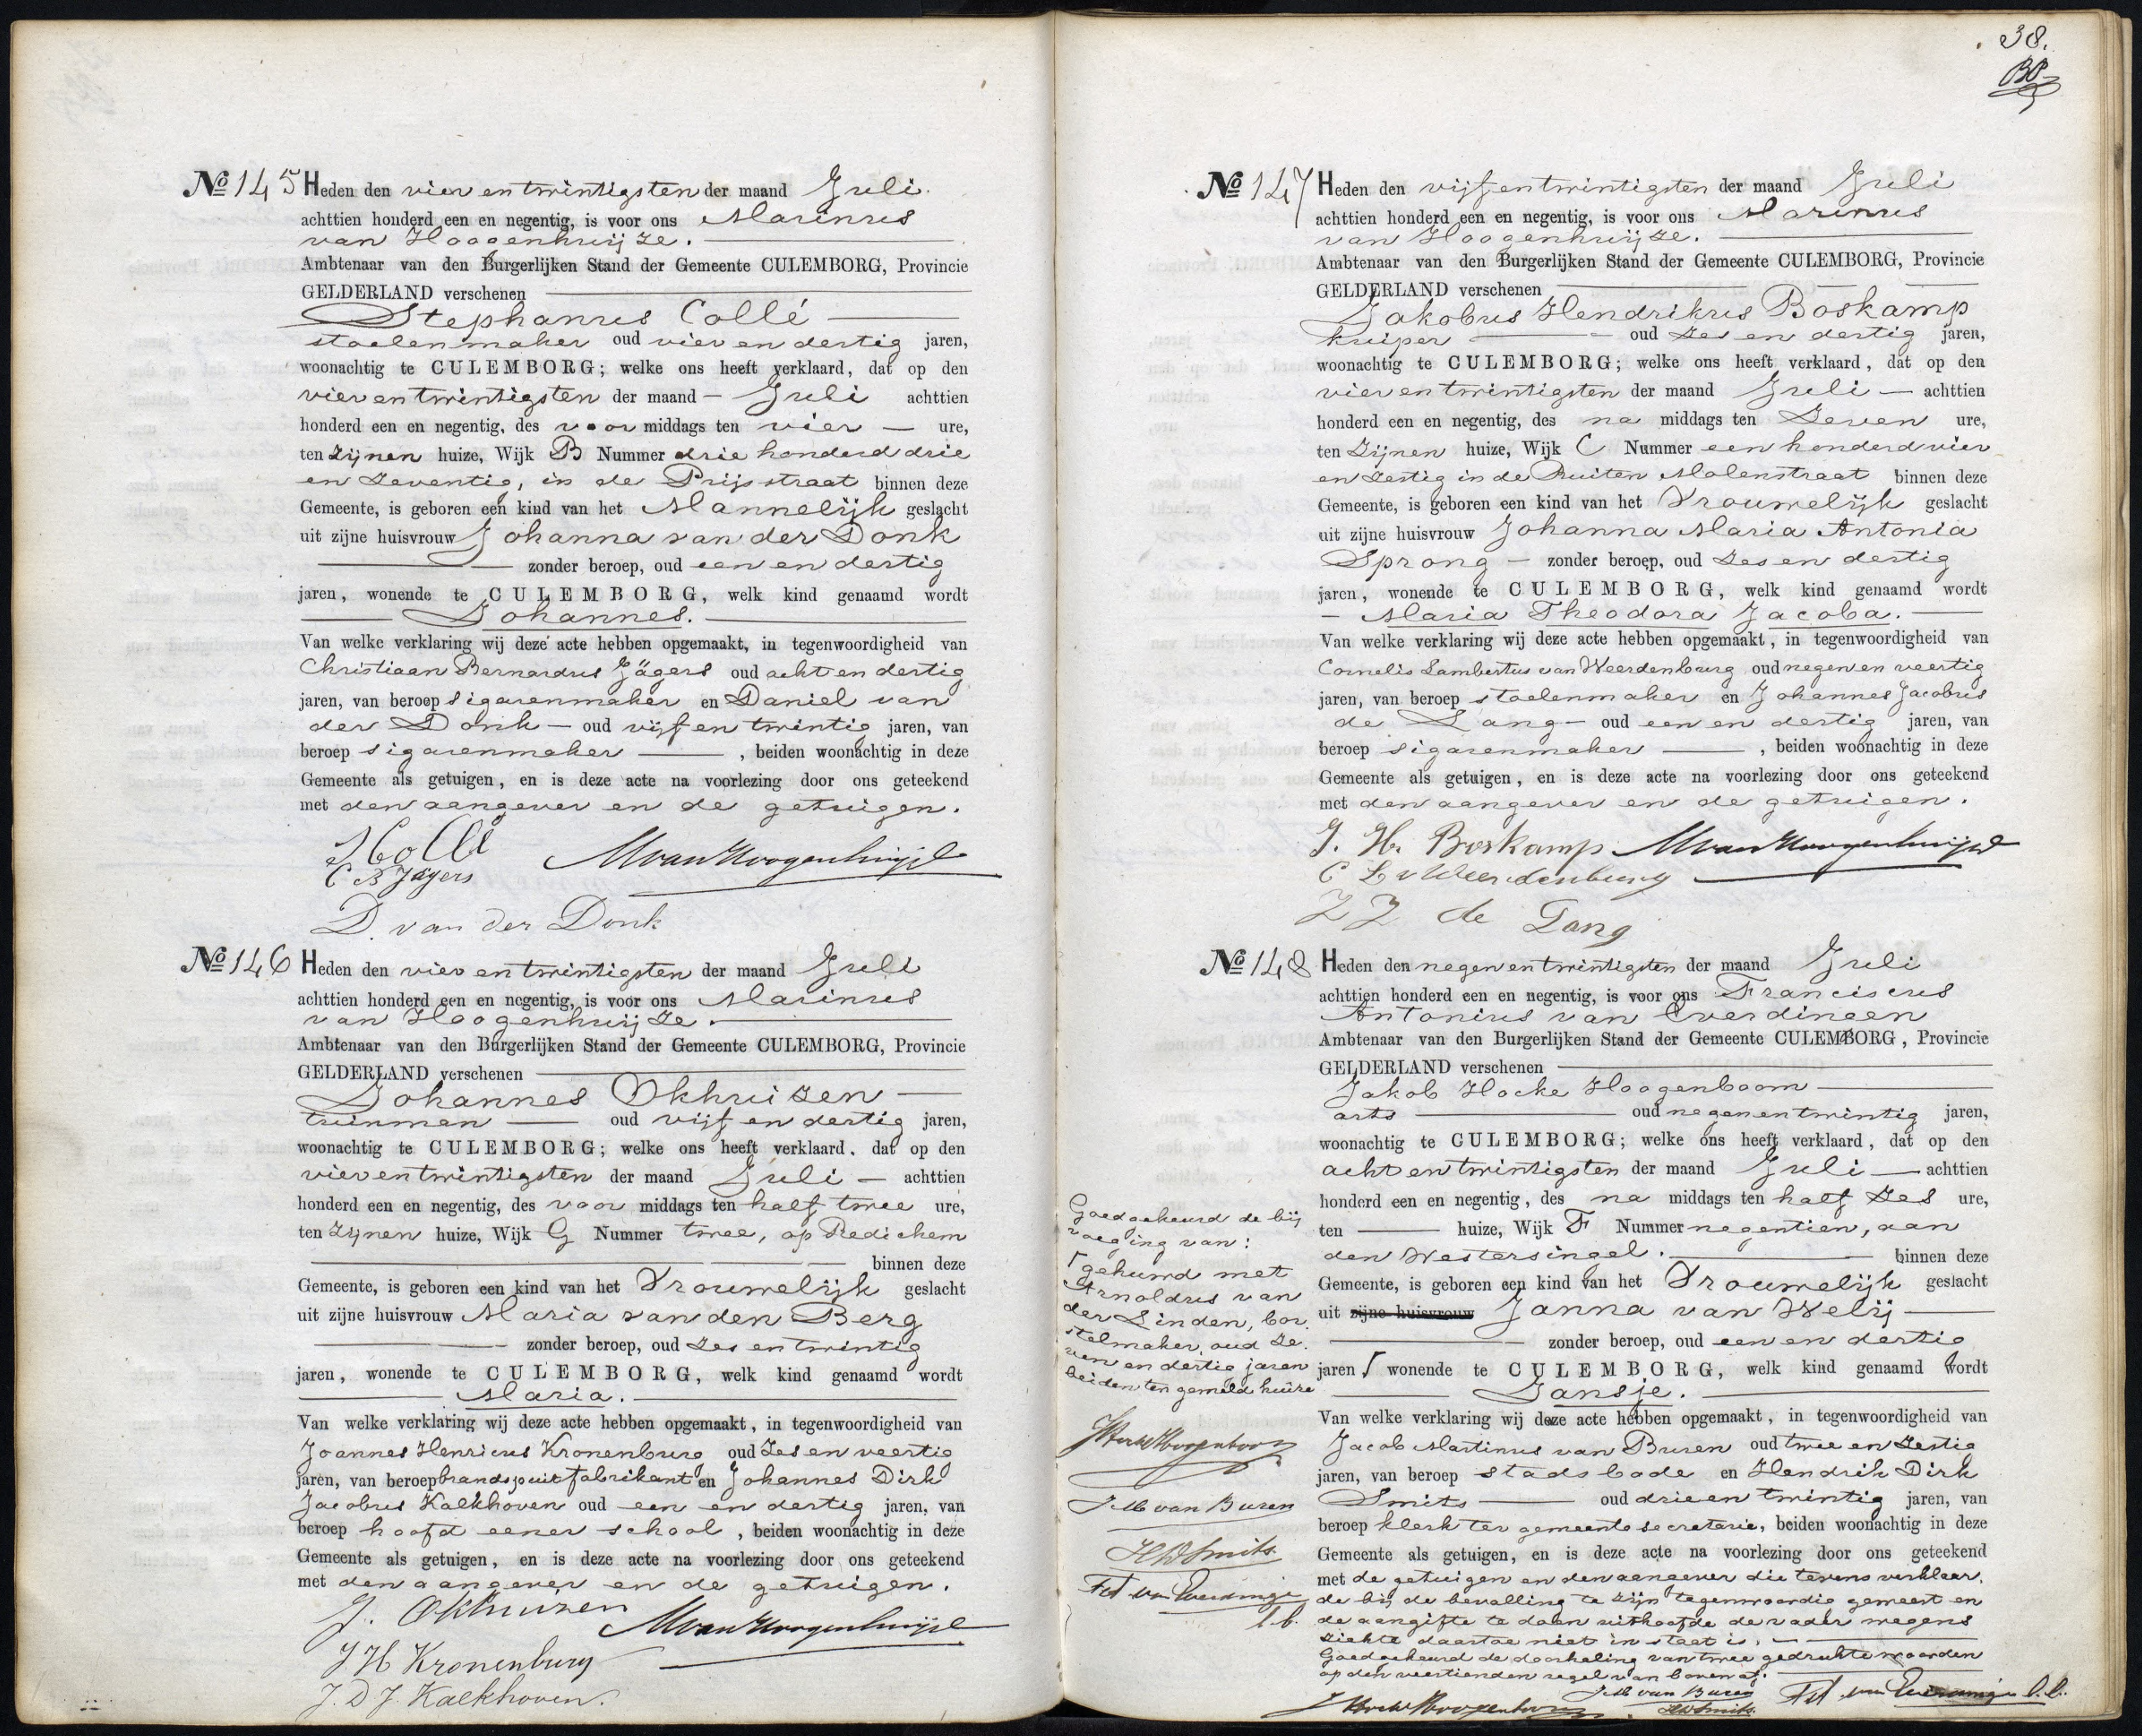 No 145 Heden den vier en twintigsten der maand Juli.
achttien honderd een en negentig, is voor ons Marinus
van Hoogenhuijze.
Ambtenaar van den Burgerlijken Stand der Gemeente CULEMBORG, Provincie
GELDERLAND verschenen
Stephanus Collé
stoelenmaker oud vier en dertig jaren,
woonachtig te CULEMBORG; welke ons heeft verklaard, dat op den
vier en twintigsten der maand Juli achttien
honderd een en negentig, des voor middags ten vier ure,
ten zijnen huize, Wijk B Nummer drie honderd drie
en zeventig, in de Prijsstraat binnen deze
Gemeente, is geboren een kind van het Mannelijk geslacht
uit zijne huisvrouw Johanna van der Donk
zonder beroep, oud een en dertig
jaren, wonende te CULEMBORG, welk kind genaamd wordt
Johannes.
Van welke verklaring wij deze acte hebben opgemaakt, in tegenwoordigheid van
Christiaan Bernardus Jägers oud acht en dertig
jaren, van beroep sigarenmaker en Daniel van
der Donk oud vijf en twintig jaren, van
beroep sigarenmaker, beiden woonachtig in deze
Gemeente als getuigen, en is deze acte na voorlezing door ons geteekend
met den aangever en de getuigen.
S Collé MvanHoogenhuijze
C B Jägers
D. van der Donk
No 146 Heden den vier en twintigsten der maand Juli
achttien honderd een en negentig, is voor ons Marinus
van Hoogenhuijze.
Ambtenaar van den Burgerlijken Stand der Gemeente CULEMBORG, Provincie
GELDERLAND verschenen
Johannes Okhuizen
tuinman oud vijf en dertig jaren,
woonachtig te CULEMBORG; welke ons heeft verklaard, dat op den
vier en twintigsten der maand Juli achttien
honderd een en negentig, des voor middags ten half twee ure,
ten zijnen huize, Wijk G Nummer twee, op Redichem
binnen deze
Gemeente, is geboren een kind van het Vrouwelijk geslacht
uit zijne huisvrouw Maria van den Berg
zonder beroep, oud zes en twintig
jaren, wonende te CULEMBORG, welk kind genaamd wordt
Maria.
Van welke verklaring wij deze acte hebben opgemaakt, in tegenwoordigheid van
Joannes Henricus Kronenburg oud zes en veertig
jaren, van beroep brandspuitfabrikant en Johannes Dirk
Jacobus Kalkhoven oud een en dertig jaren, van
beroep hoofd eener school, beiden woonachtig in deze
Gemeente als getuigen, en is deze acte na voorlezing door ons geteekend
met den aangever en de getuigen.
J. Okhuizen MvanHoogenhuijze
J H Kronenburg
J. D J. Kalkhoven.
38.
No 147 Heden den vijf en twintigsten der maand Juli
achttien honderd een en negentig, is voor ons Marinus
van Hoogenhuijze.
Ambtenaar van den Burgerlijken Stand der Gemeente CULEMBORG, Provincie
GELDERLAND verschenen
Jakobus Hendrikus Boskamp
kuiper oud zes en dertig jaren,
woonachtig te CULEMBORG; welke ons heeft verklaard, dat op den
vier en twintigsten der maand Juli achttien
honderd een en negentig, des na middags ten Zeven ure,
ten Zijnen huize, Wijk C Nummer een honderd vier
en zestig in de Buiten Molenstraat binnen deze
Gemeente, is geboren een kind van het Vrouwelijk geslacht
uit zijne huisvrouw Johanna Maria Antonia
Sprong zonder beroep, oud zes en dertig
jaren, wonende te CULEMBORG, welk kind genaamd wordt
Maria Theodora Jacoba.
Van welke verklaring wij deze acte hebben opgemaakt, in tegenwoordigheid van
Cornelis Lambertus van Weerdenburg oud negen en veertig
jaren, van beroep stoelenmaker en Johannes Jacobus
de Lang oud een en dertig jaren, van
beroep sigarenmaker, beiden woonachtig in deze
Gemeente als getuigen, en is deze acte na voorlezing door ons geteekend
met den aangever en de getuigen.
J. H. Boskamp MvanHoogenhuijze
C L v Weerdenburg
J J de Lang
No 148 Heden den negen en twintigsten der maand Juli
achttien honderd een en negentig, is voor ons Franciscus
Antonius van Everdingen
Ambtenaar van den Burgerlijken Stand der Gemeente CULEMBORG, Provincie
GELDERLAND verschenen
Jakob Hocke Hoogenboom
arts oud negen en twintig jaren,
woonachtig te CULEMBORG; welke ons heeft verklaard, dat op den
acht en twintigsten der maand Juli achttien
honderd een en negentig, des na middags ten half zes ure,
ten huize, Wijk F Nummer negentien, aan
den Westersingel. binnen deze
Gemeente, is geboren een kind van het Vrouwelijk geslacht
uit zijne huisvrouw Janna van Welij
zonder beroep, oud een en dertig
jaren wonende te CULEMBORG, welk kind genaamd wordt
Jansje.
Van welke verklaring wij deze acte hebben opgemaakt, in tegenwoordigheid van
Jacob Martinus van Buren oud twee en zestig
jaren, van beroep stadsbode en Hendrik Dirk
Smits oud drie en twintig jaren, van
beroep klerk ter gemeente secretarie, beiden woonachtig in deze
Gemeente als getuigen, en is deze acte na voorlezing door ons geteekend
met de getuigen en den aangever die tevens verklaar,
de bij de bevalling te zijn tegenwoordig geweest en
de aangifte te doen uithoofde de vader wegens
ziekte daartoe niet in staat is.
Goedgekeurd de doorhaling van twee gedrukte woorden
op den veertienden regel van boven af.
JHockeHoogenboom J M van Buren HDSmits FA van Everdingen l.b.
Goedgekeurd de bij
voeging van:
gehuwd met
Arnoldus van
der Linden, bor.
stelmaker, oud ze.
ven en dertig jaren
beiden ten gemelde huize
JHockeHoogenboom
J M van Buren
HDSmits.
FA van Everdingen
l.b.